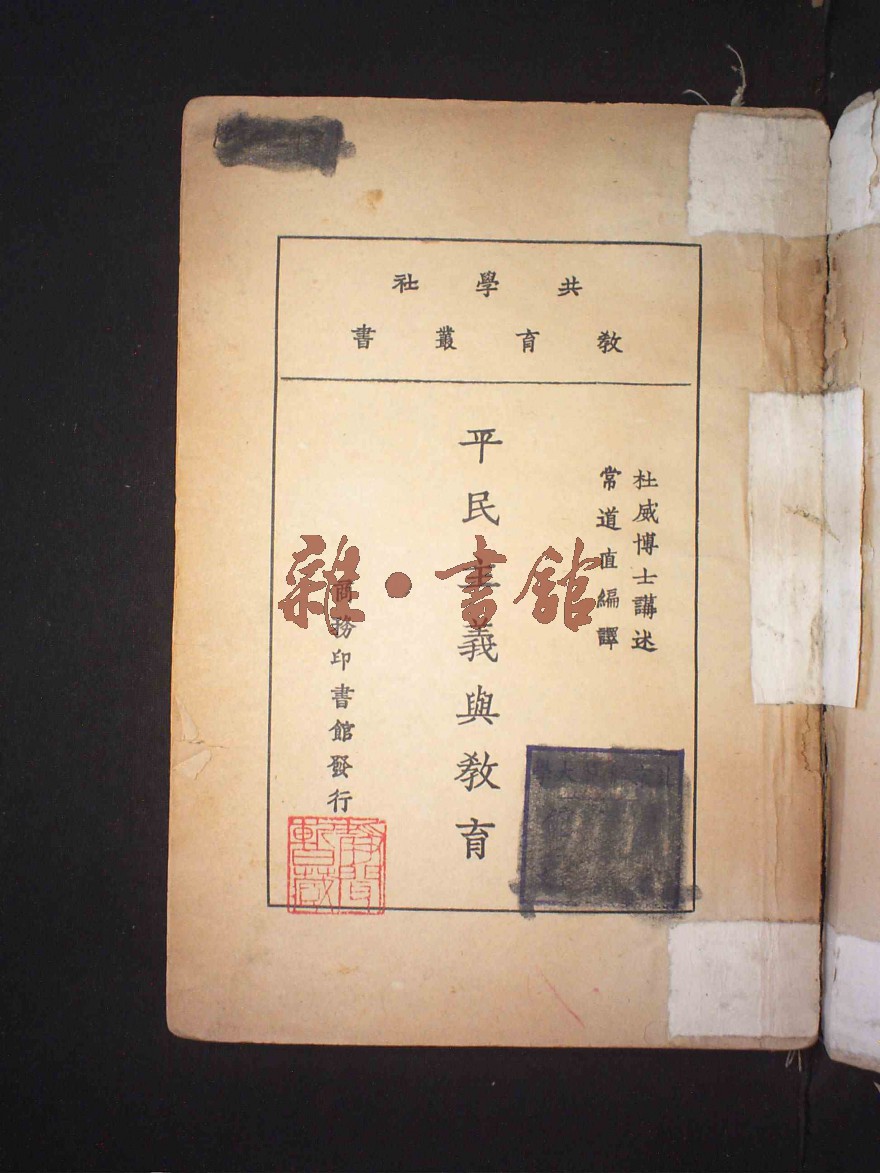 共學社
教育叢書
杜威博士講述
常道直編譯
平民主義與教育
商務印書館發行
雜·書館